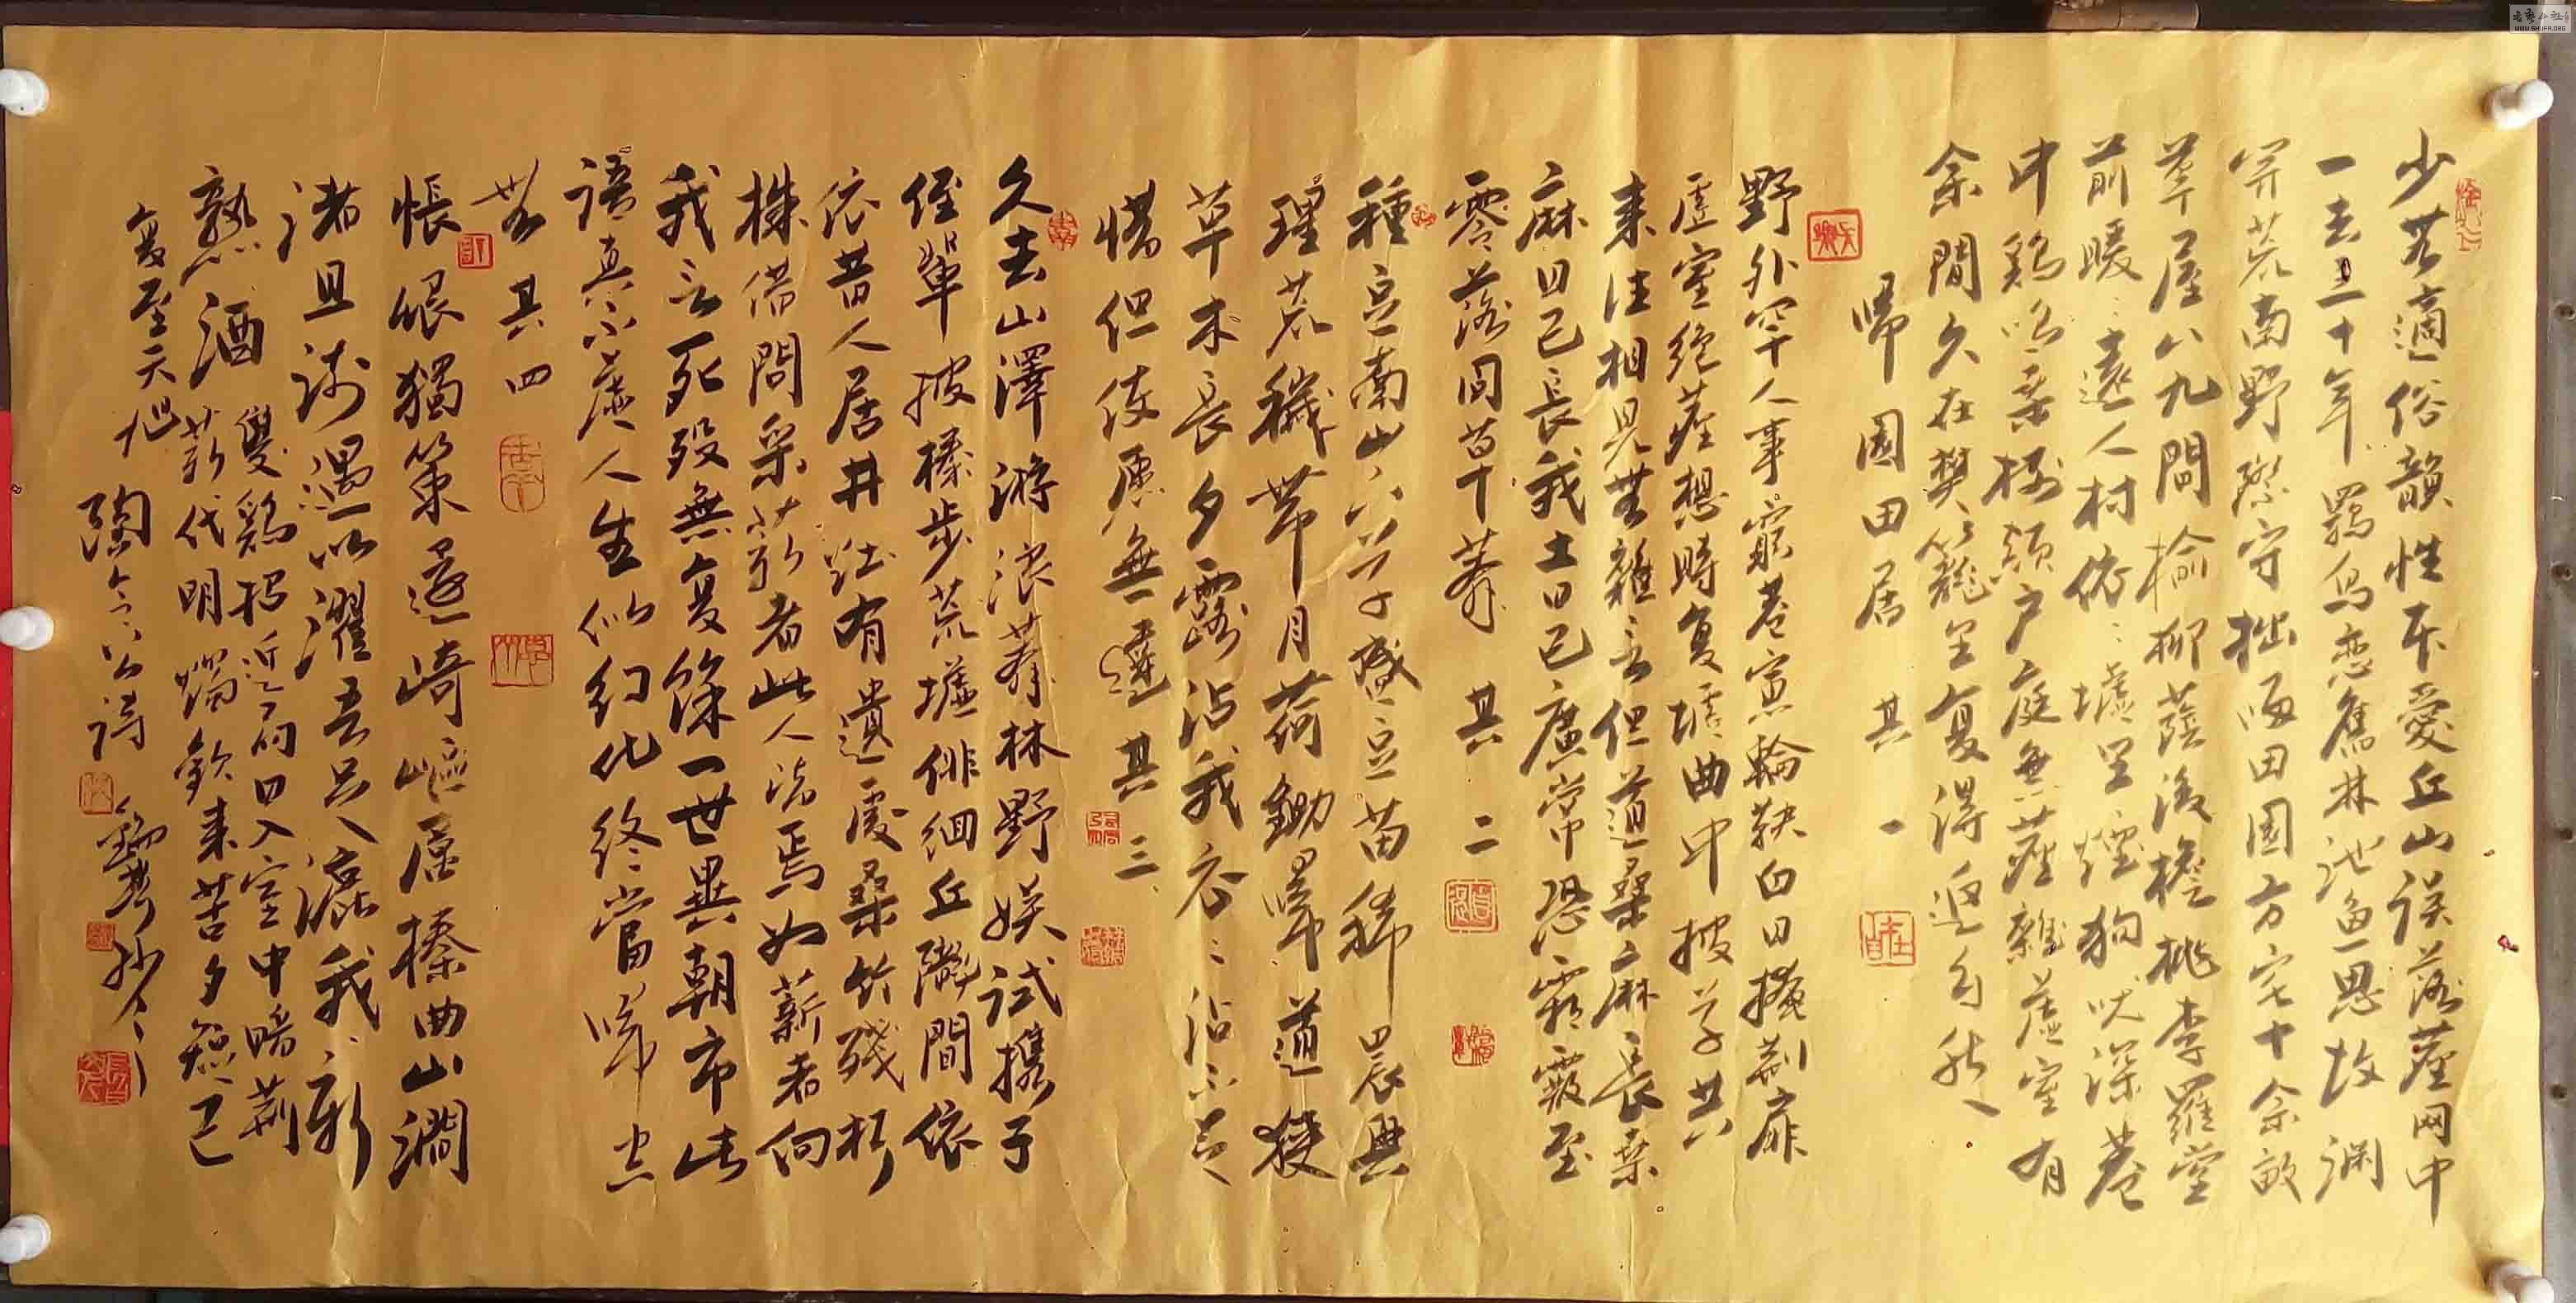 少無適俗韻性本愛丘山误落塵网中
一去三十年羁鸟恋舊林池鱼思故渊
開荒南野際守拙歸田園方宅十余畝
草屋八九間榆柳蔭後檐桃李羅堂
前暖暖遠人村依依墟里煙狗吠深巷
中鷄鳴桑樹颠户庭無塵雜虚室有
余閒久在樊籠里复得返自然
歸園田居 其一
野外罕人事窮巷寡輪鞅白日掩荆扉
虚室绝塵想時复墟曲中披草共
来往相見無雜言但道桑麻長桑
麻日已長我土日已廣常恐霜霰至
零落同草莽 其二
種豆南山下草盛豆苗稀晨興
理荒穢带月荷鋤歸道狭
草木長夕露沾我衣衣沾不足
惜但使願無違其三
久去山澤游浪莽林野娱试攜子
侄輩披榛步荒墟徘徊丘隴間依
依昔人居井灶有遺處桑竹殘朽
株借問采薪者此人皆焉如薪者向
我言死殁無复餘一世異朝市此
語真不虚人生似幻化终當歸空
無其四
悵恨獨策還崎嶇歷榛曲山澗
清且浅遇以濯吾足漉我新
熟酒雙鷄招近局日入室中暗荆
薪代明燭歡来苦夕短已
复至天旭
陶令公詩
抄